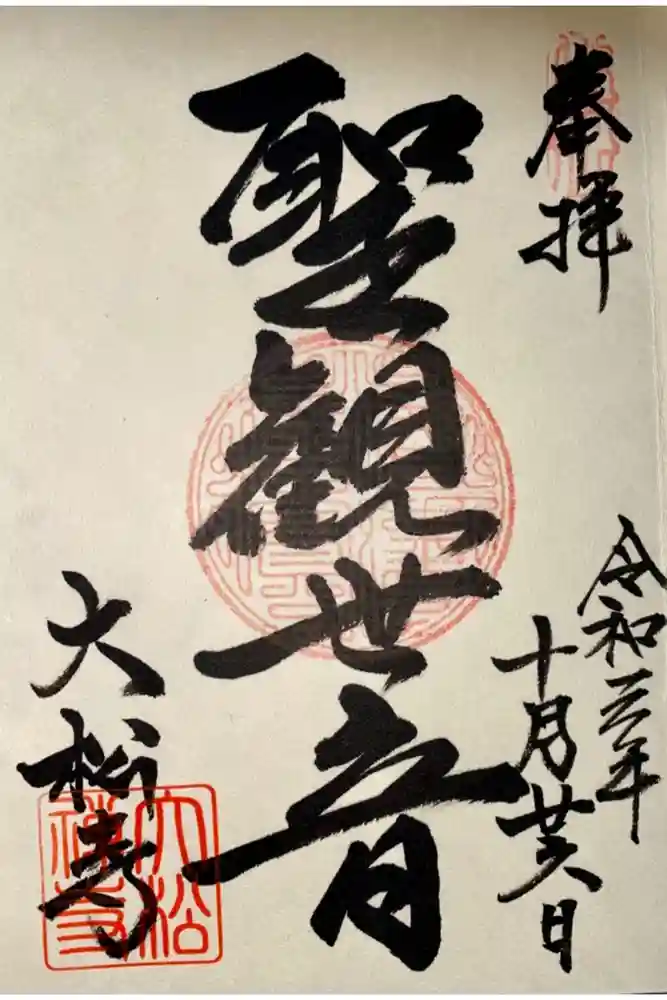 奉拝
令和三年
十月廿六日
聖觀世音
大松寺
大松
禅寺